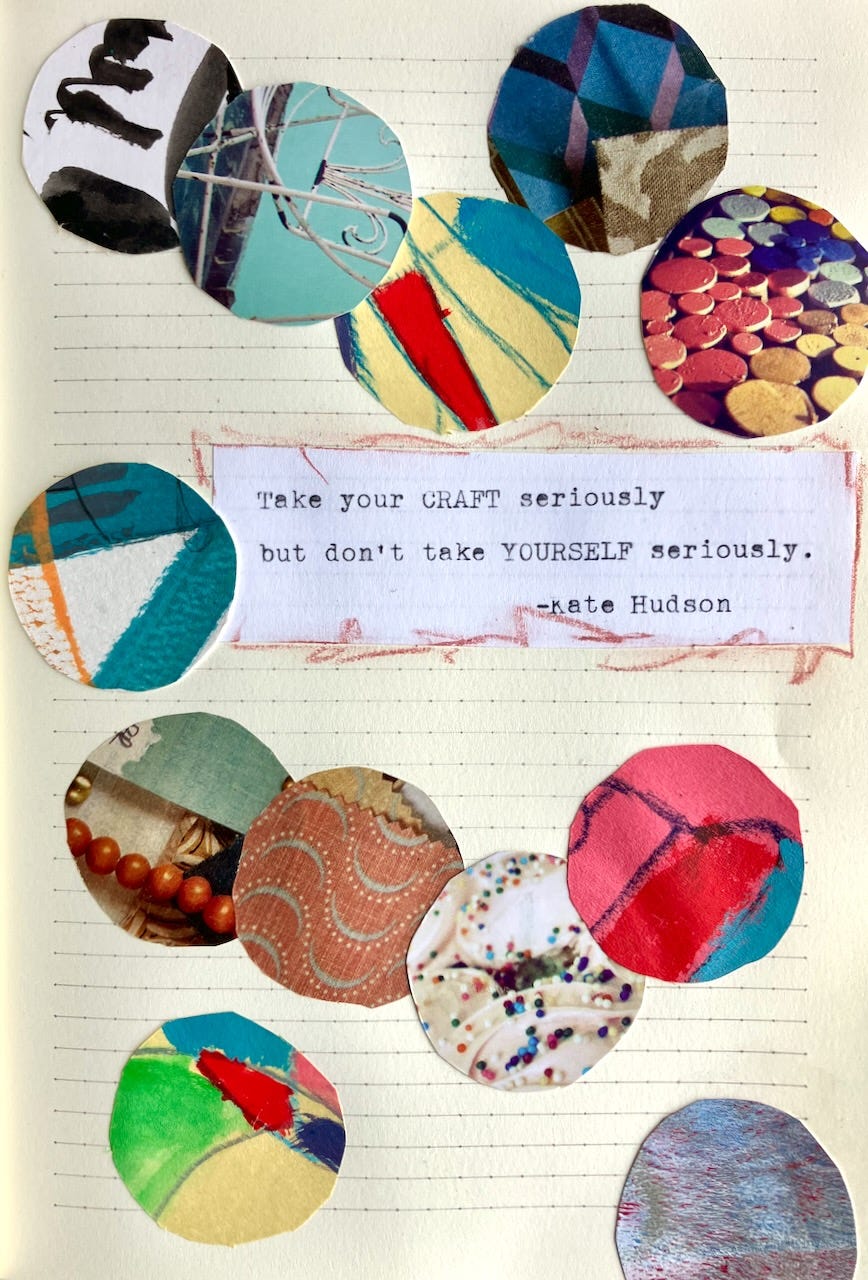 Take your CRAFT seriously
but don't take YOURSELF seriously.
-Kate Hudson